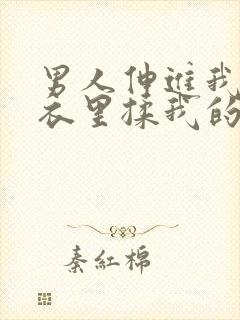 男人伸进我
衣里揉我的
秦红棉